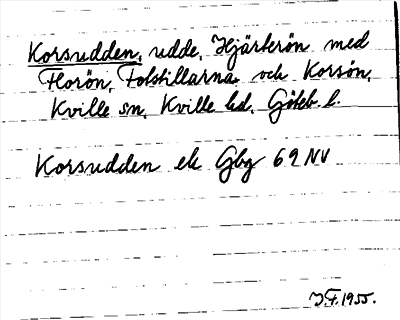 Korsudden, udde, Hjärterön med
Florön, Folstillarna och Korsön,
Kville sn, Kville hd, Göteb. l.
Korsudden ek Gbg 69 NV
J.F. 1955.